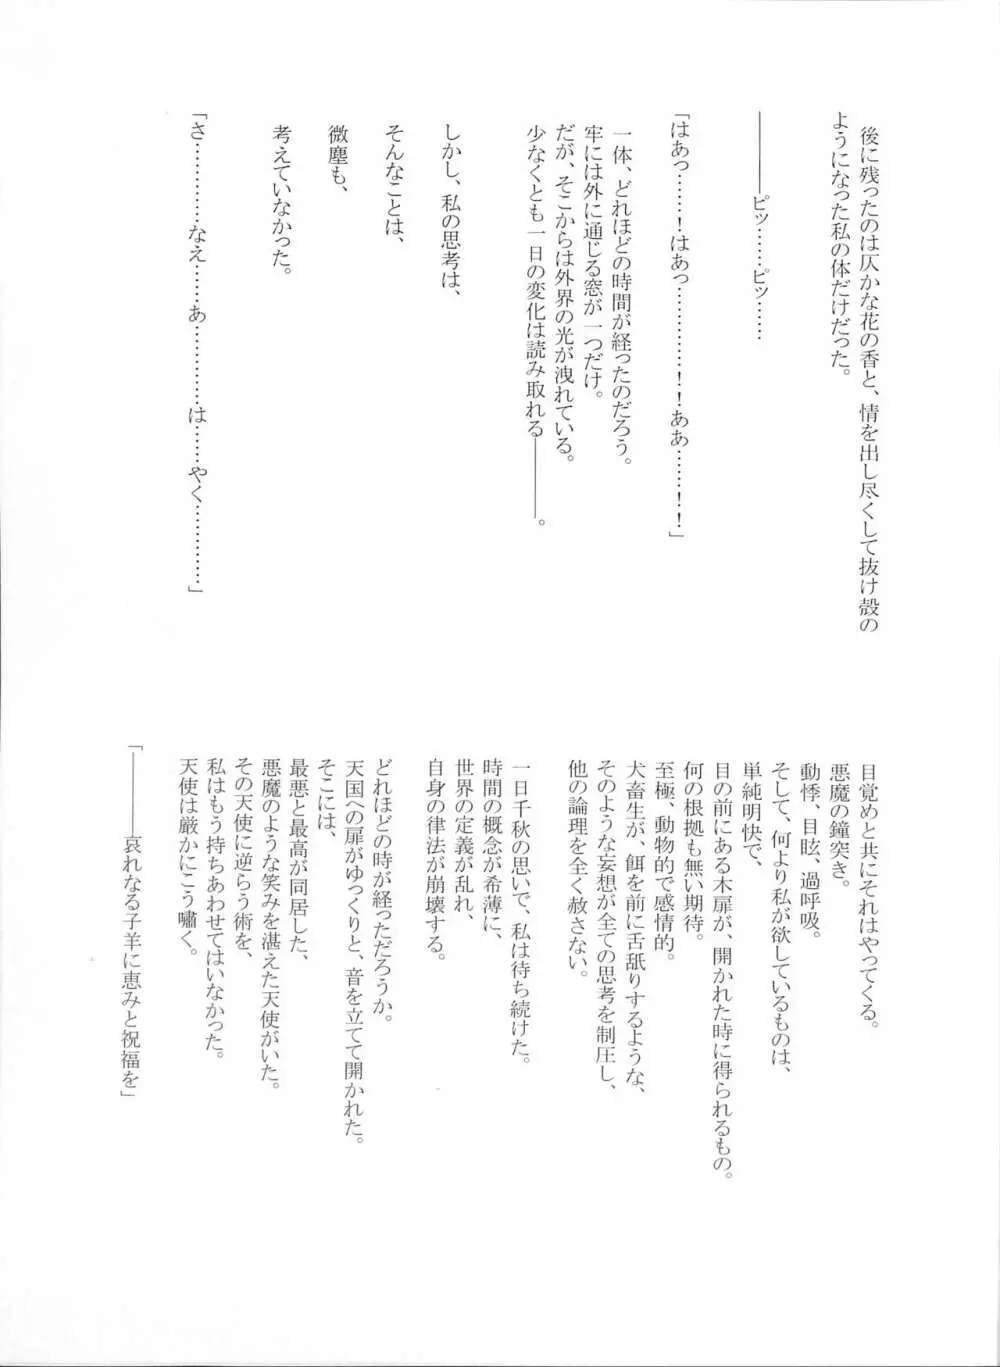 後に残ったのは仄かな花の香と、情を出し尽くして抜け殻の
ようになった私の体だけだった。
――――ピッ……ピッ……
「はあっ……！はあっ…………！！ああ……！！」
一体、どれほどの時間が経ったのだろう。
牢には外に通じる窓が一つだけ。
だが、そこからは外界の光が洩れている。
少なくとも一日の変化は読み取れる――――。
しかし、私の思考は、
そんなことは、
微塵も、
考えていなかった。
「さ…………なえ……あ…………は……やく…………」
目覚めと共にそれはやってくる。
悪魔の鐘突き。
動悸、目眩、過呼吸。
そして、何より私が欲しているものは、
単純明快で、
目の前にある木扉が、開かれた時に得られるもの。
何の根拠も無い期待。
至極、動物的で感情的。
犬畜生が、餌を前に舌舐りするような、
そのような妄想が全ての思考を制圧し、
他の論理を全く赦さない。
一日千秋の思いで、私は待ち続けた。
時間の概念が希薄に、
世界の定義が乱れ、
自身の律法が崩壊する。
どれほどの時が経っただろうか。
天国への扉がゆっくりと、音を立てて開かれた。
そこには、
最悪と最高が同居した、
悪魔のような笑みを湛えた天使がいた。
その天使に逆らう術を、
私はもう持ちあわせてはいなかった。
天使は厳かにこう嘯く。
「――――哀れなる子羊に恵みと祝福を」